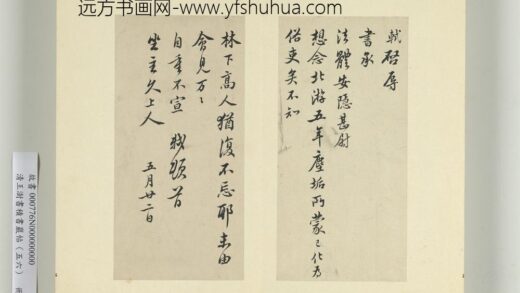 远方书画网-www.yfshuhua.com
軾啓辱
書承
法體安隱甚慰
想念北游五年塵垢所蒙已化為
俗吏矣不知
林下高人猶復不忘耶未由
會見万〻
自重不宣 軾頓首
坐主久上人 五月廿二日
故書 000776N000000000
清王澍書積書巖帖（五六）